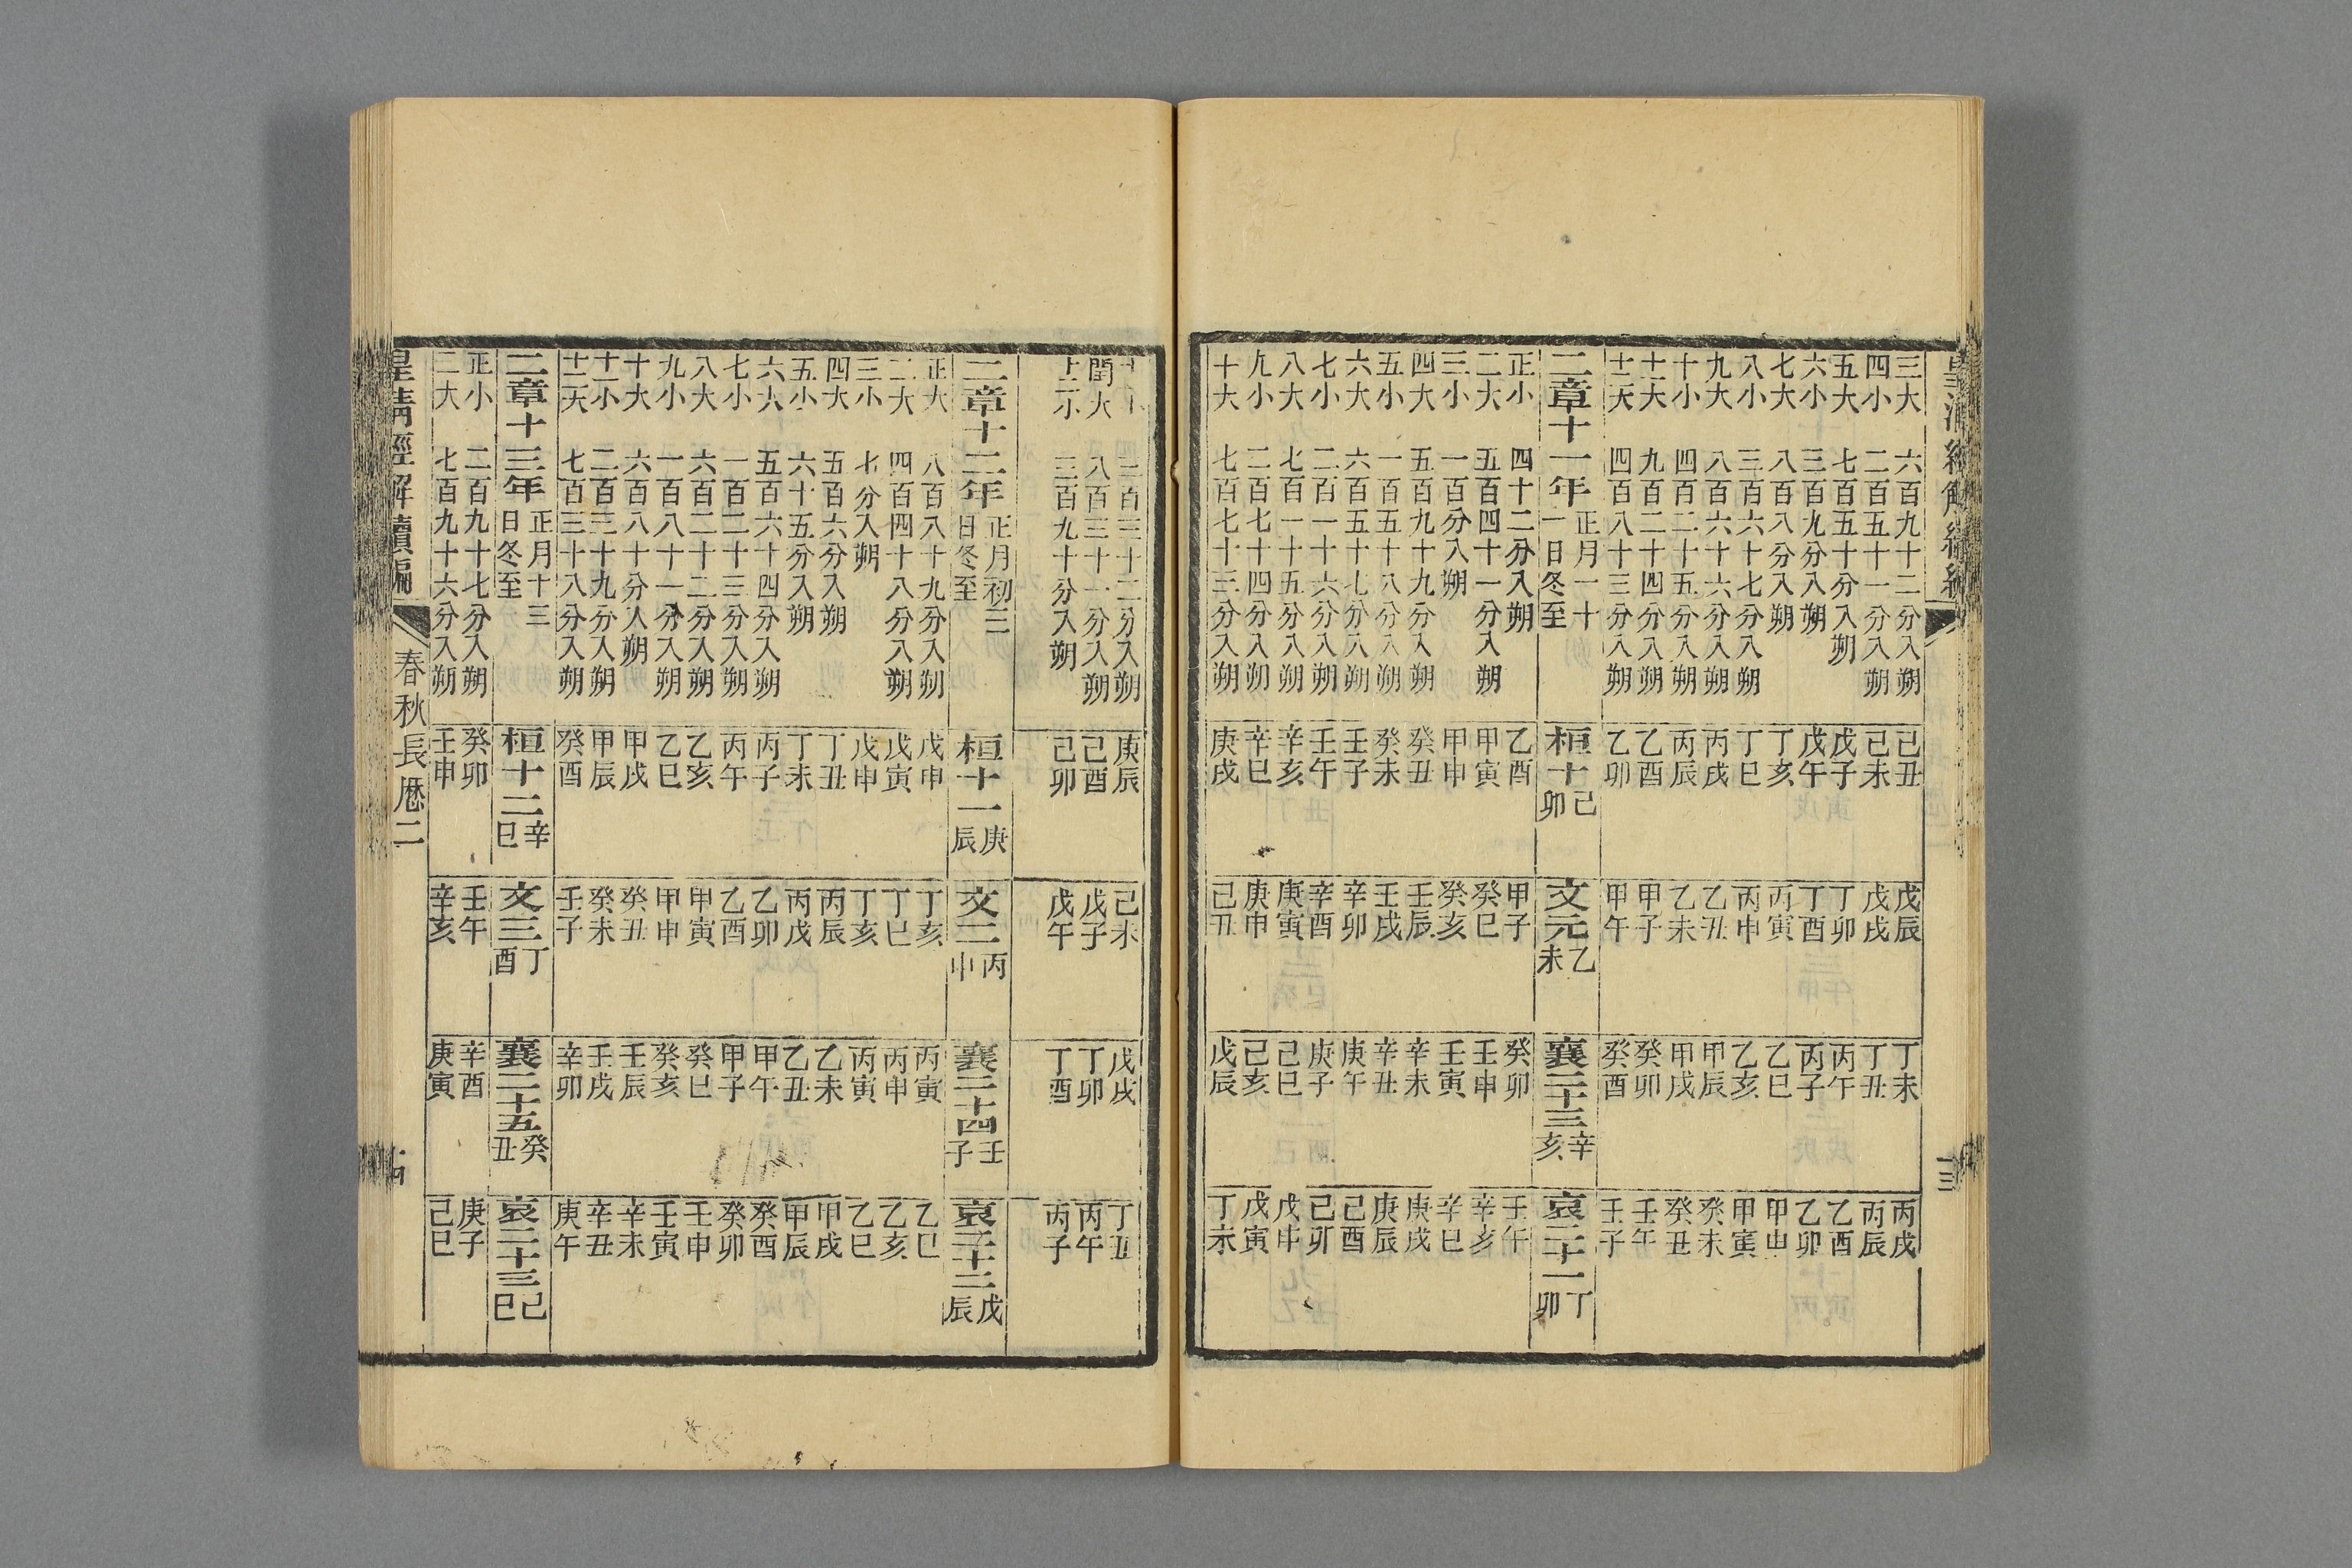 三大 六百九十二分入朔 己丑 戊辰 丁未 丙戌
四小 二百五十一分入朔 己未 戊戌 丁丑 丙辰
五大 七百五十分入朔 戊子 丁卯 丙午 乙酉
六小 三百九分入朔 戊午 丁酉 丙子 乙卯
七大 八百八分入朔 丁亥 丙寅 乙巳 甲申
八小 三百六十七分入朔 丁巳 丙申 乙亥 甲寅
九大 八百六十六分入朔 丙戌 乙丑 甲辰 癸未
十小 四百二十五分入朔 丙辰 乙未 甲戌 癸丑
十一大 九百二十四分入朔 乙酉 甲子 癸卯 壬午
十二大 四百八十三分入朔 乙卯 甲午 癸酉 壬子
二章十一年 正月二十一日冬至 桓十己卯 文元乙未 襄二十三辛亥 哀二十一丁卯
正小 四十二分入朔 乙酉 甲子 癸卯 壬午
二大 五百四十一分入朔 甲寅 癸巳 壬申 辛亥
三小 一百分入朔 甲申 癸亥 壬寅 辛巳
四大 五百九十九分入朔 癸丑 壬辰 辛未 庚戌
五小 一百五十八分入朔 癸未 壬戌 辛丑 庚辰
六大 六百五十七分入朔 壬子 辛卯 庚午 己酉
七小 二百一十六分入朔 壬午 辛酉 庚子 己卯
八大 七百一十五分入朔 辛亥 庚寅 己巳 戊申
九小 二百七十四分入朔 辛巳 庚申 己亥 戊寅
十大 七百七十三分入朔 庚戌 己丑 戊辰 丁未
十一小 三百三十二分入朔 庚辰 己未 戊戌 丁丑
閏大 八百三十一分入朔 己酉 戊子 丁卯 丙午
十二小 三百九十分入朔 己卯 戊午 丁酉 丙子
二章十二年 正月初二日冬至 桓十一庚辰 文二丙申 襄二十四壬子 哀二十二戊辰
正大 八百八十九分入朔 戊申 丁亥 丙寅 乙巳
二大 四百四十八分入朔 戊寅 丁巳 丙申 乙亥
三小 七分入朔 戊申 丁亥 丙寅 乙巳
四大 五百六分入朔 丁丑 丙辰 乙未 甲戌
五小 六十五分入朔 丁未 丙戌 乙丑 甲辰
六大 五百六十四分入朔 丙子 乙卯 甲午 癸酉
七小 一百二十三分入朔 丙午 乙酉 甲子 癸卯
八大 六百二十二分入朔 乙亥 甲寅 癸巳 壬申
九小 一百八十一分入朔 乙巳 甲申 癸亥 壬寅
十大 六百八十分入朔 甲戌 癸丑 壬辰 辛未
十一小 二百三十九分入朔 甲辰 癸未 壬戌 辛丑
十二大 七百三十八分入朔 癸酉 壬子 辛卯 庚午
二章十三年 正月十三日冬至 桓十二辛巳 文三丁酉 襄二十五癸丑 哀二十三己巳
正小 二百九十七分入朔 癸卯 壬午 辛酉 庚子
二大 七百九十六分入朔 壬申 辛亥 庚寅 己巳
皇清經解續編 春秋長厤二